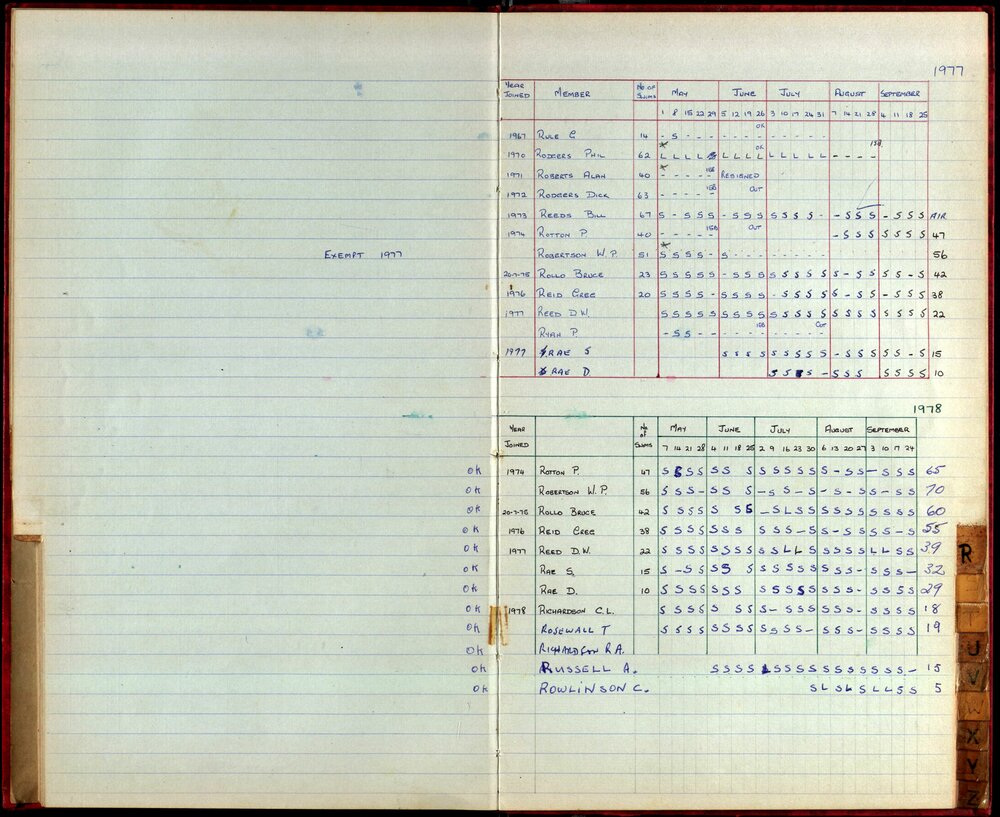 1977
YEAR JOINED MEMBER No OF SWIMS MAY JUNE JULY AUGUST SEPTEMBER
1 8 15 22 29 5 12 19 26 3 10 17 24 31 7 14 21 28 4 11 18 25
1967 RULE G 14 - S - - - - - - - - - - - -
OK
1970 RODGERS PHIL 62 L L L L L L L L L L L L L - - - -
OK 15B
1971 ROBERTS ALAN 40 - - - - - RESIGNED
15B
1972 RODGERS DICK 63 - - - - -
15B OUT
1973 REEDS BILL 67 S - S S S - S S S S S S S - - S S S - S S S AIR
1974 ROTTON P. 40 - - - - - - S S S S S S S 47
15B OUT
EXEMPT 1977 ROBERTSON W.P. 51 S S S S - S - - - - - - - - 56
20-7-75 ROLLO BRUCE 23 S S S S S - S S S S S S S S S - S S S S - S 42
1976 REID GREG 20 S S S S - S S S S - S S S S S - S S - S S S 38
1977 REED D.W. S S S S S S S S S S S S S S S S S S S S S S 22
RYAN P. - S S - - - - - - - - - - -
15B OUT
1977 RAE S S S S S S S S S S - S S S S S - S 15
RAE D. S S S S - S S S S S S S 10
1978
YEAR JOINED No OF SWIMS MAY JUNE JULY AUGUST SEPTEMBER
7 14 21 28 4 11 18 25 2 9 16 23 30 6 13 20 27 3 10 17 24
OK 1974 ROTTON P. 47 S S S S S S S S S S S S S - S S - S S S 65
OK ROBERTSON W.P. 56 S S S - S S S - S S - S - S - S S - S S 70
OK 20-7-75 ROLLO BRUCE 42 S S S S S S S - S L S S S S S S S S S S 60
OK 1976 REID GREG 38 S S S S S S S S S S - S S - S S S S - S 55
OK 1977 REED D.W. 22 S S S S S S S S S S L L S S S S S L L S S 39
OK RAE S. 15 S - S S S S S S S S S S S S S - S S S - 32
OK RAE D. 10 S S S S S S S S S S S S S S S - S S S S 29
OK 1978 RICHARDSON C.L. S S S S S S S S - S S S S S S - S S S S 18
OK ROSEWALL T S S S S S S S S S S S S - S S S - S S S S 19
OK RICHARDSON R.A.
OK RUSSELL A. S S S S L S S S S S S S S S S S - 15
OK ROWLINSON C. S L S L S L L S S 5
R
U
V
W
X
Y
Z